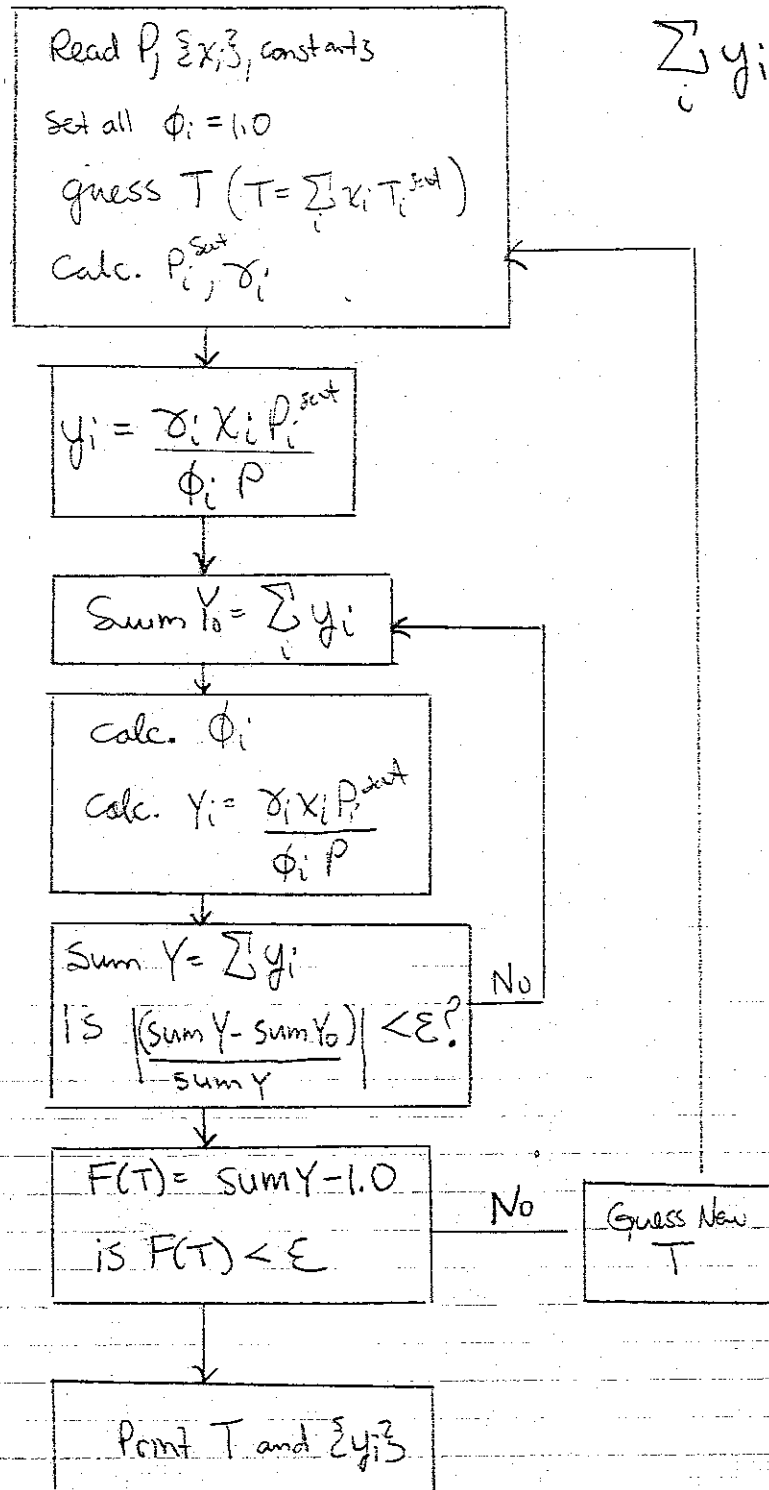 Read P, {xᵢ}, constants
∑ᵢ yᵢ
Set all ϕᵢ = 1.0
guess T (T = ∑ᵢ xᵢ Tᵢ^sat)
Calc. Pᵢ^sat, γᵢ
yᵢ = γᵢ xᵢ Pᵢ^sat / ϕᵢ P
Sum Y₀ = ∑ᵢ yᵢ
calc. ϕᵢ
calc. Yᵢ = γᵢ xᵢ Pᵢ^sat / ϕᵢ P
Sum Y = ∑ yᵢ
No
is |(sum Y - sum Y₀) / sum Y| < ε?
F(T) = sum Y - 1.0
No
Guess New
T
is F(T) < ε
Print T and {yᵢ}